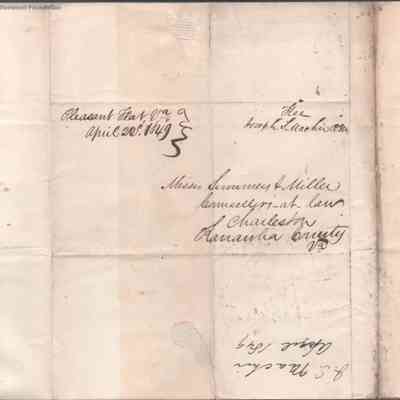 Pleasant Flat, Va
April 22d. 1849
Free
Joseph S. Machir P.M.
Messrs Summers & Miller
Councillors-at law
Charleston
Kanawha County
Va
J. S. Machir
April 1849